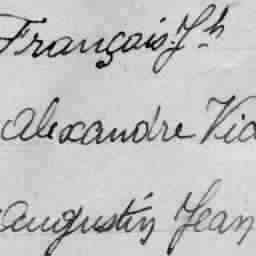 François Jh
Alexandre Vic
Augustin Jean